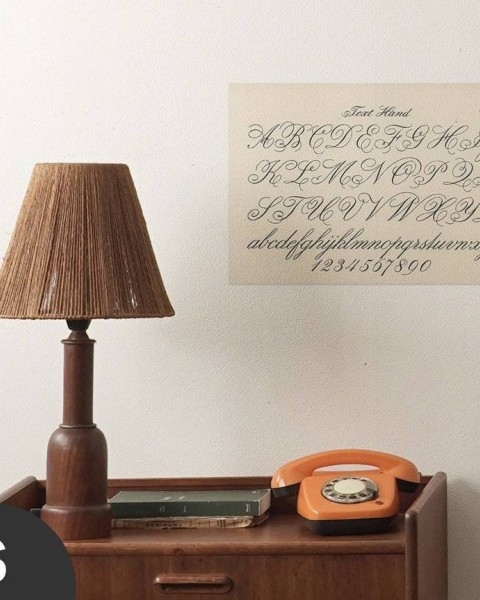 Text Hand
A B C D E F G H
K L M N O P Q
S T U V W X Y
abcdefghijklmnopqrstuvwx
1234567890
S